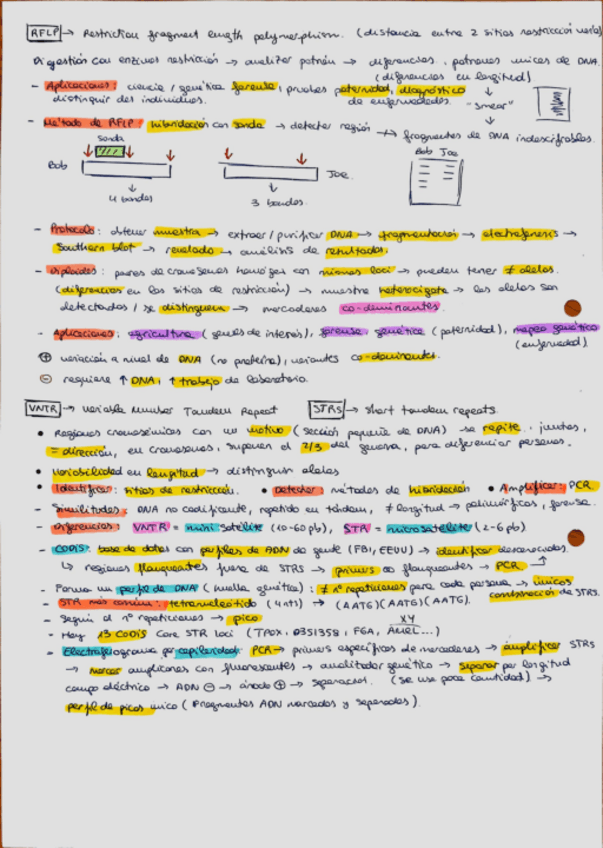 RFLP → Restriction fragment length polymorphism. (distancia entre 2 sitios restricción varía)
Digestión con enzimas restricción → analizar patrón → diferencias. patrones únicos de DNA.
(diferencias en longitud)
- Aplicaciones: ciencia / genética forense, pruebas paternidad, diagnóstico
distinguir dos individuos. de enfermedades. "smear"
- Método de RFLP: hibridación con sonda → detectar región → fragmentos de DNA indescifrables.
sonda
Bob Joe
Bob Joe
4 bandas 3 bandas
- Protocolo: obtener muestra → extraer / purificar DNA → fragmentación → electroforesis →
Southern blot → revelado → análisis de resultados.
- Diploides: pares de cromosomas homólogos con mismos loci → pueden tener ≠ alelos.
(diferencias en los sitios de restricción) → muestra heterocigota → los alelos son
detectados / se distinguen → marcadores co-dominantes.
- Aplicaciones: agricultura (genes de interés), forense, genética (paternidad), mapeo genético
(enfermedad)
⊕ variación a nivel de DNA (no proteína), variantes co-dominantes.
⊖ requiere ↑ DNA, ↑ trabajo de laboratorio.
VNTR → Variable Number Tandem Repeat STRs → short tandem repeats.
• Regiones cromosómicas con un motivo (sección pequeña de DNA) → se repite, juntas,
= dirección, en cromosomas, suponen el 2/3 del genoma, para diferenciar personas.
• Variabilidad en longitud → distinguir alelos
• Identificar: sitios de restricción. • Detectar: métodos de hibridación • Amplificar: PCR
- Similitudes: DNA no codificante, repetido en tándem, ≠ longitud → polimórficos, forense.
- Diferencias: VNTR = mini satélite (10-60 pb), STR = microsatélite (2-6 pb)
- CODIS: base de datos con perfiles de ADN de gente (FBI, EEUU) → identificar desconocidos.
↳ regiones flanqueantes fuera de STRS → primers a flanqueantes → PCR
- Forma un perfil de DNA (huella genética): ≠ nº repeticiones para cada persona → únicos
combinación de STRs.
- STR más común: tetranucleótido (4 nts) → (AATG)(AATG)(AATG).
- Según el nº repeticiones → pico
XY
- Hay 13 CODIS Core STR loci (TPOX, D3S1358, FGA, AMEL...)
- Electroferograma por capilaridad: PCR → primers específicos de marcadores → amplificar STRs
→ marcar amplicones con fluorescentes → analizador genético → separar por longitud
campo eléctrico → ADN ⊖ → ánodo ⊕ → separación. (se usa poca cantidad) →
perfil de picos único (Fragmentos ADN marcados y separados).